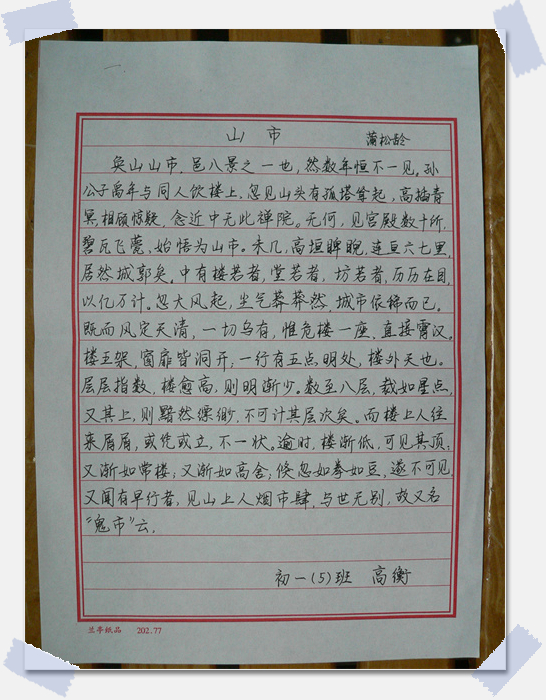 山市
蒲松龄
奂山山市，邑八景之一也，然数年恒不一见。孙
公子禹年与同人饮楼上，忽见山头有孤塔耸起，高插青
冥，相顾惊疑，念近中无此禅院。无何，见宫殿数十所，
碧瓦飞甍，始悟为山市。未几，高垣睥睨，连亘六七里，
居然城郭矣。中有楼若者，堂若者，坊若者，历历在目，
以亿万计。忽大风起，尘气莽莽然，城市依稀而已。
既而风定天清，一切乌有，惟危楼一座，直接霄汉。
楼五架，窗扉皆洞开；一行有五点明处，楼外天也。
层层指数，楼愈高，则明渐少。数至八层，裁如星点，
又其上，则黯然缥缈，不可计其层次矣。而楼上人往
来屑屑，或凭或立，不一状。逾时，楼渐低，可见其顶；
又渐如常楼；又渐如高舍；倏忽如拳如豆，遂不可见
又闻有早行者，见山上人烟市肆，与世无别，故又名
“鬼市”云。
初一(5)班 高衡
兰亭纸品 202.77